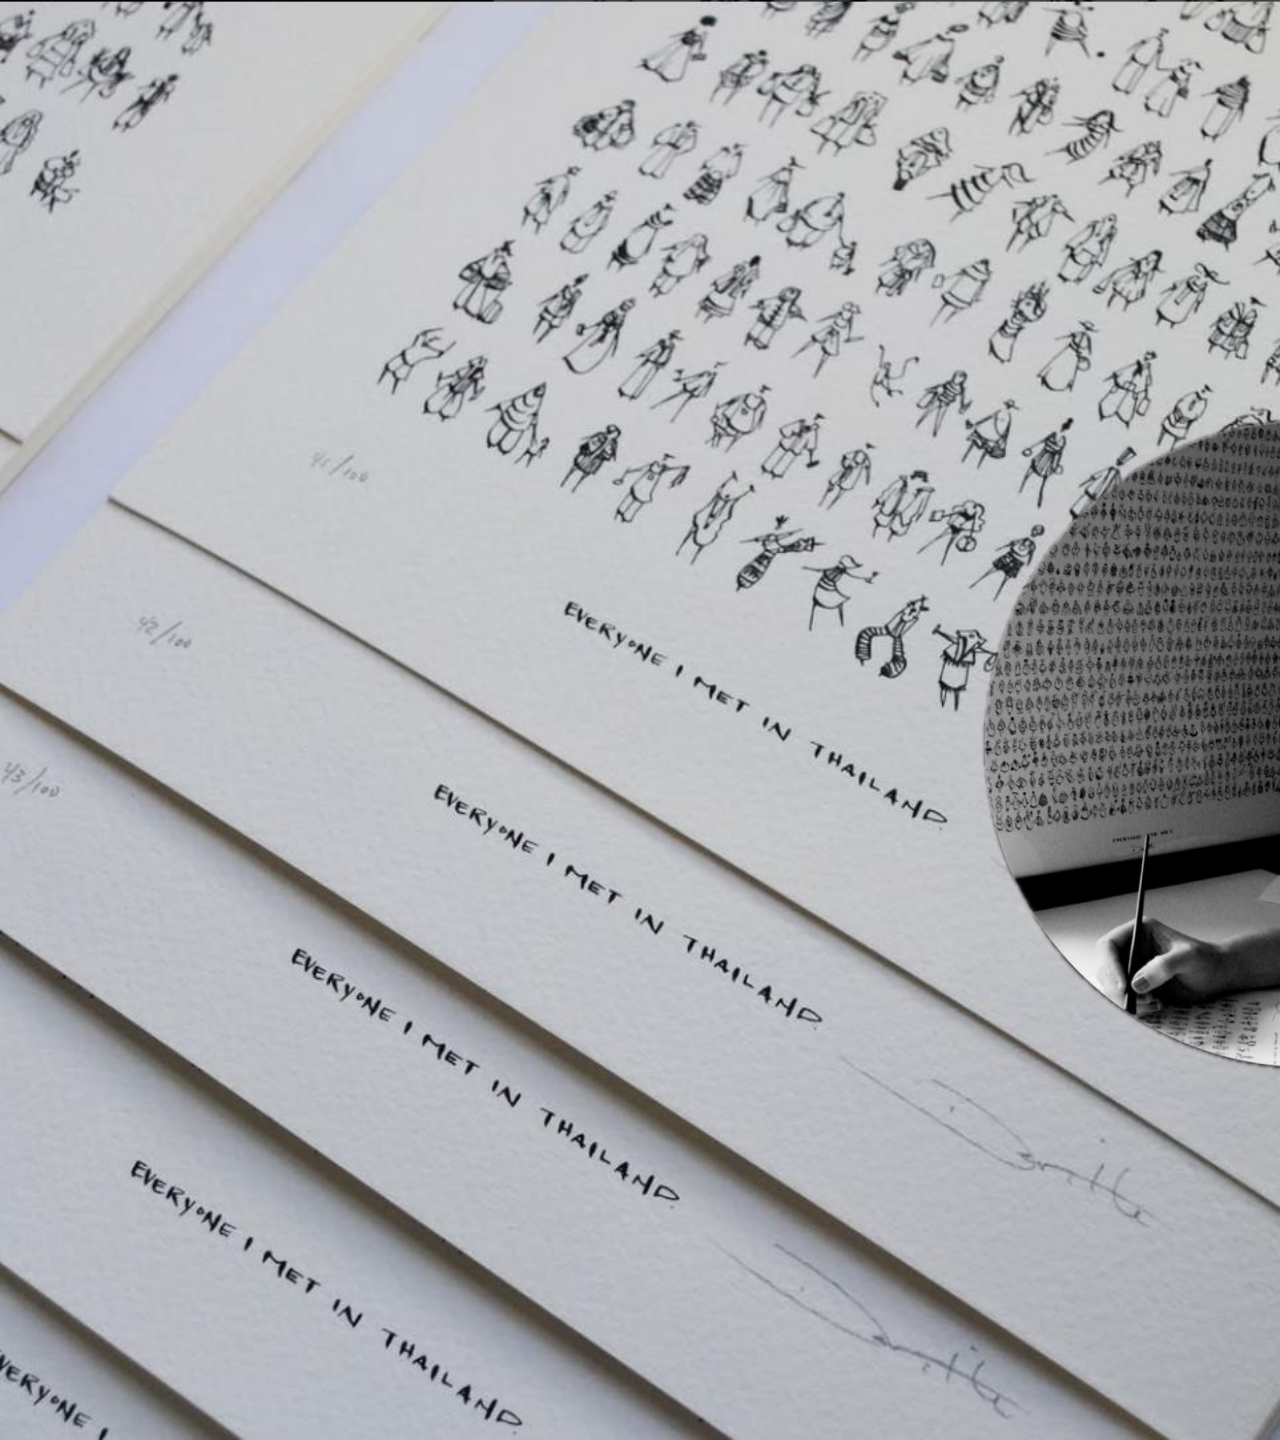 41/100
EVERYONE I MET IN THAILAND
42/100
EVERYONE I MET IN THAILAND
43/100
EVERYONE I MET IN THAILAND
EVERYONE I MET IN THAILAND
EVERYONE I